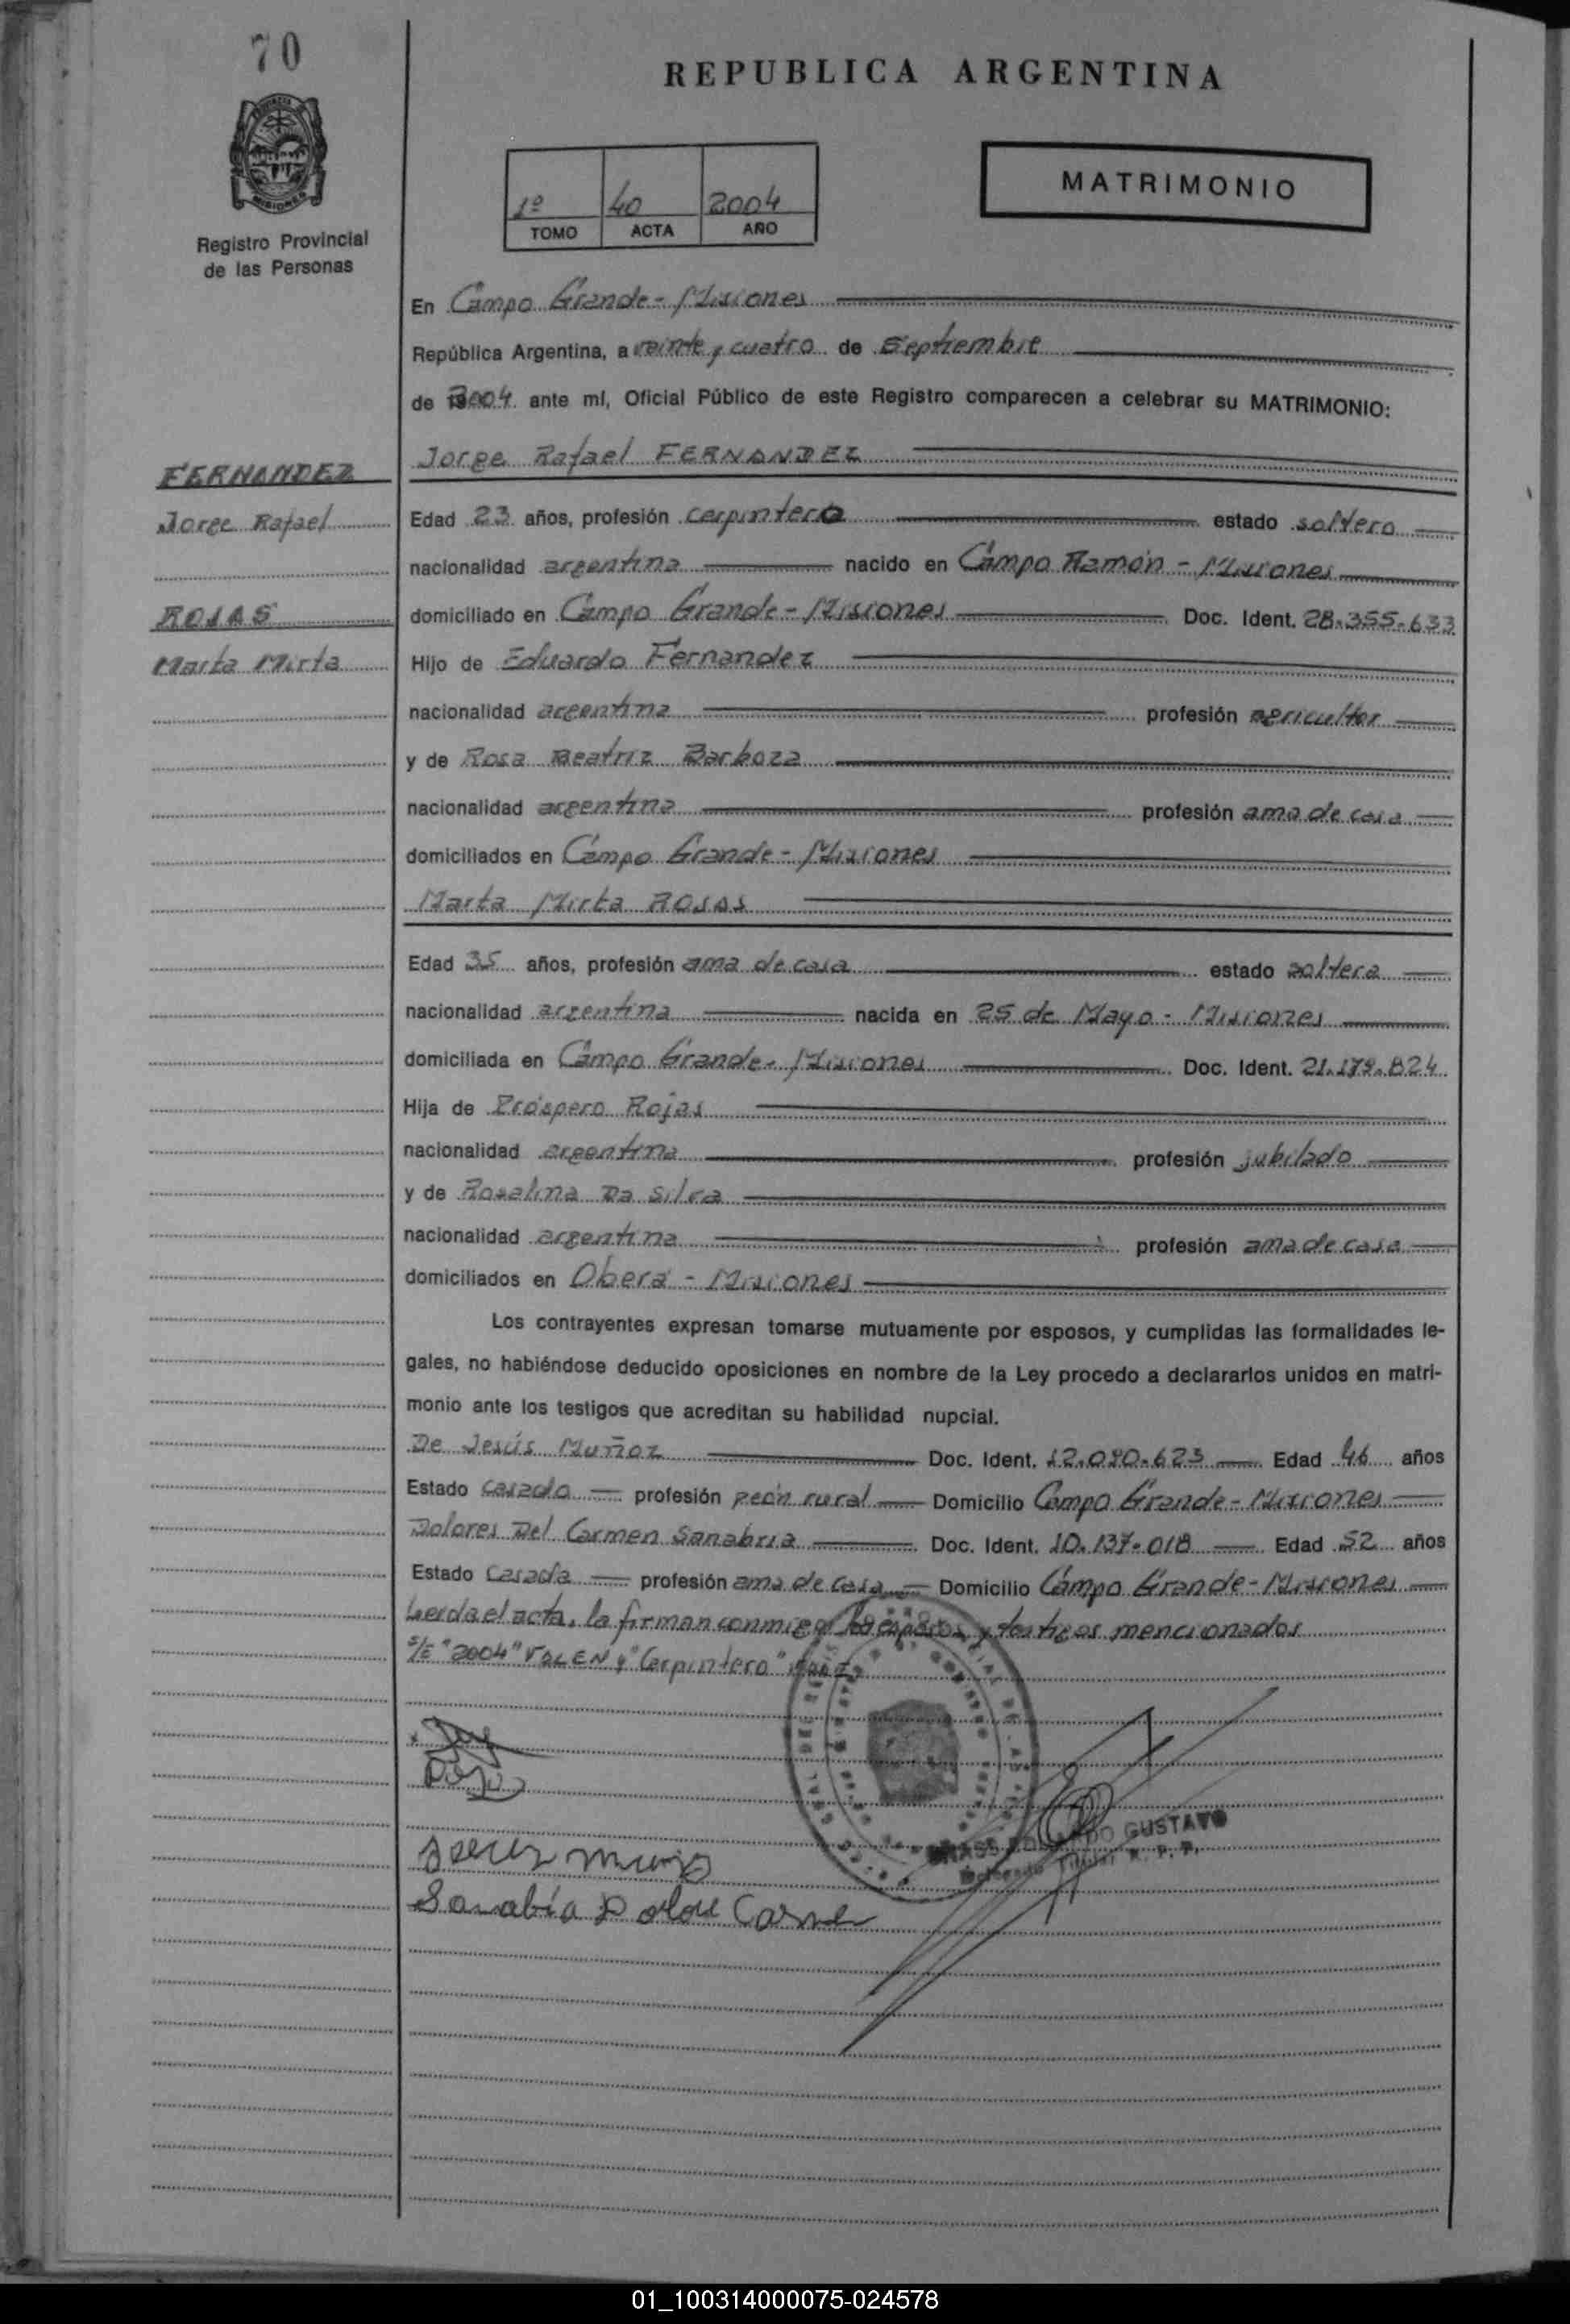 70
REPUBLICA ARGENTINA
MISIONES
Registro Provincial
de las Personas
1º 40 2004
TOMO ACTA AÑO
MATRIMONIO
En Campo Grande - Misiones
República Argentina, a veinte y cuatro de Septiembre
de 2004 ante mí, Oficial Público de este Registro comparecen a celebrar su MATRIMONIO:
FERNANDEZ
Jorge Rafael
ROJAS
Marta Mirta
Jorge Rafael FERNANDEZ
Edad 23 años, profesión carpintero estado soltero
nacionalidad argentina nacido en Campo Ramón - Misiones
domiciliado en Campo Grande - Misiones Doc. Ident. 28.355.633
Hijo de Eduardo Fernandez
nacionalidad argentina profesión agricultor
y de Rosa Beatriz Barboza
nacionalidad argentina profesión ama de casa
domiciliados en Campo Grande - Misiones
Marta Mirta ROJAS
Edad 35 años, profesión ama de casa estado soltera
nacionalidad argentina nacida en 25 de Mayo - Misiones
domiciliada en Campo Grande - Misiones Doc. Ident.
Hija de Próspero Rojas
nacionalidad argentina profesión jubilado
y de Rosalina Da Silva
nacionalidad argentina profesión ama de casa
domiciliados en Oberá - Misiones
Los contrayentes expresan tomarse mutuamente por esposos, y cumplidas las formalidades le-
gales, no habiéndose deducido oposiciones en nombre de la Ley procedo a declararlos unidos en matri-
monio ante los testigos que acreditan su habilidad nupcial.
De Jesús Muñoz Doc. Ident. Edad 46 años
Estado casado profesión peón rural Domicilio Campo Grande - Misiones
Dolores Del Carmen Sanabria Doc. Ident. 10.137.018 Edad 52 años
Estado Casada profesión ama de casa Domicilio Campo Grande - Misiones
Leida el acta, la firman conmigo los esposos y testigos mencionados
S/E "2004" VALEN y "Carpintero"
GUSTAVO
Sanabia Dolore Carmen
01_100314000075-024578